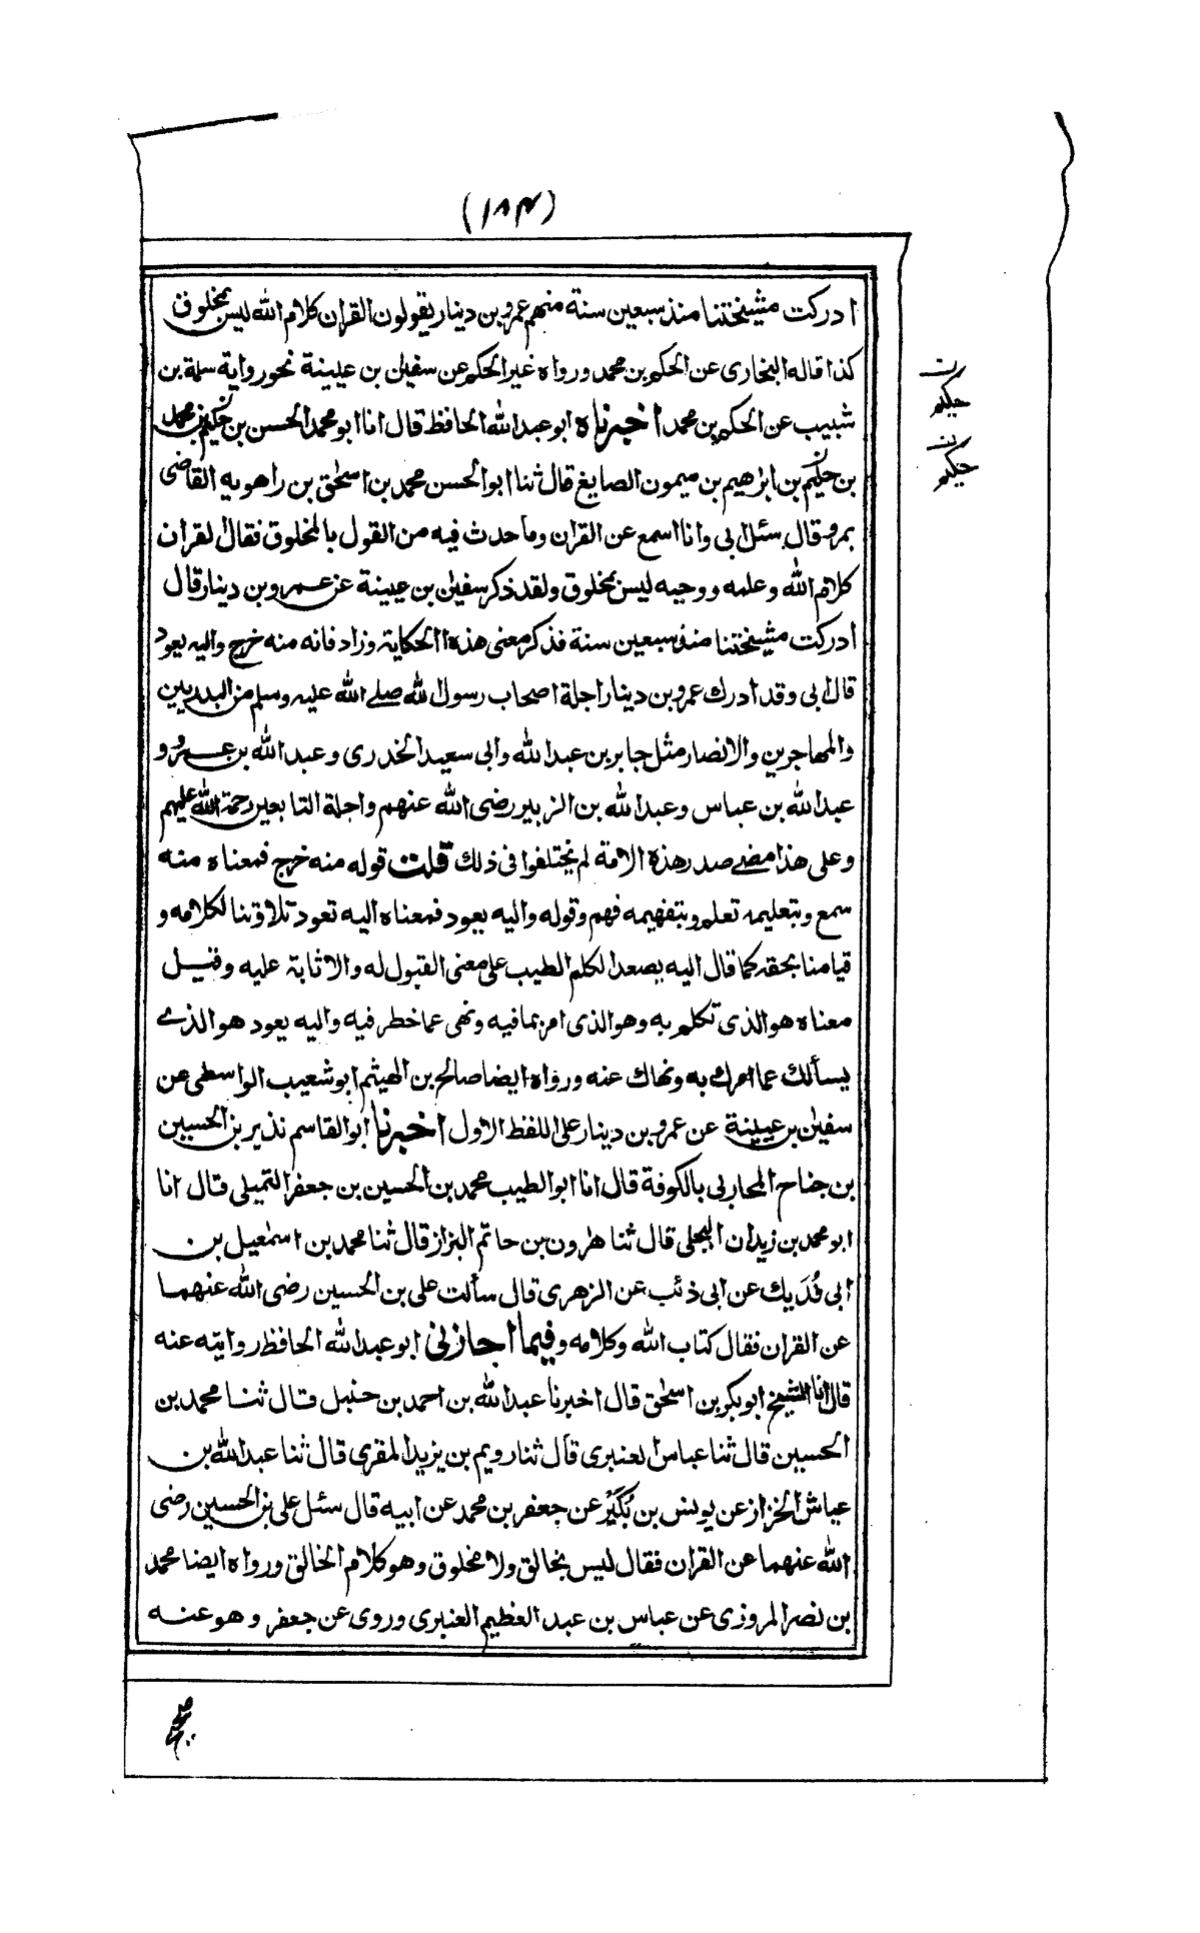 (۱۸۴)
ادركت مشيختنا منذ سبعين سنة منهم عمرو بن دينار يقولون القران كلام الله ليس بمخلوق
كذا قاله البخارى عن الحكم بن محمد ورواه غير الحكم عن سفين بن عيينة نحو رواية سلمة بن
شبيب عن الحكم بن محمد اخبرناه ابو عبد الله الحافظ قال انا ابو محمد الحسن بن حكيم بن محمد
بن حكيم بن ابرهيم بن ميمون الصايغ قال ثنا ابو الحسن محمد بن اسحٰق بن راهويه القاضى
بمرو قال سئل ابى وانا اسمع عن القران وما حدث فيه من القول بالمخلوق فقال القران
كلام الله وعلمه ووحيه ليس بمخلوق ولقد ذكر سفين بن عيينة عن عمرو بن دينار قال
ادركت مشيختنا منذ سبعين سنة فذكر معنى هذه الحكاية وزاد فانه منه خرج واليه يعود
قال ابى وقد ادرك عمرو بن دينار اجلة اصحاب رسول الله صلے الله عليه وسلم من البدريين
والمهاجرين والانصار مثل جابر بن عبد الله وابى سعيد الخدرى وعبد الله بن عمرو و
عبد الله بن عباس وعبد الله بن الزبير رضى الله عنهم واجلة التابعين رحمة الله عليهم
وعلى هذا مضے صدر هذه الامة لم يختلفوا فى ذلك قلت قوله منه خرج فمعناه منه
سمع وبتعليمه تعلم وبتفهيمه فهم وقوله واليه يعود فمعناه اليه تعود تلاوتنا لكلامه و
قيامنا بحقه كما قال اليه يصعد الكلم الطيب على معنى القبول له والاثابة عليه وقيل
معناه هو الذى تكلم به وهو الذى امر بما فيه ونهى عما خطر فيه واليه يعود هو الذے
يسألك عما امرك به ونهاك عنه ورواه ايضا صالح بن الهيثم ابو شعيب الواسطى عن
سفين بن عيينة عن عمرو بن دينار على اللفظ الاول اخبرنا ابو القاسم نذير بن الحسين
بن جناح المحاربى بالكوفة قال انا ابو الطيب محمد بن الحسين بن جعفر التيملى قال انا
ابو محمد بن زيدان البجلى قال ثنا هٰرون بن حاتم البزاز قال ثنا محمد بن اسمٰعيل بن
ابى فُدَيك عن ابى ذئب عن الزهرى قال سألت على بن الحسين رضى الله عنهما
عن القران فقال كتاب الله وكلامه وفيما اجازلى ابو عبد الله الحافظ روايته عنه
قال انا الشيخ ابو بكر بن اسحٰق قال اخبرنا عبد الله بن احمد بن حنبل قال ثنا محمد بن
الحسين قال ثنا عباس العنبرى قال ثنا رويم بن يزيد المقرى قال ثنا عبد الله بن
عياش الخزاز عن يونس بن بُكَيْر عن جعفر بن محمد عن ابيه قال سئل على بن الحسين رضى
الله عنهما عن القران فقال ليس بخالق ولا مخلوق وهو كلام الخالق ورواه ايضا محمد
بن نصر المروزى عن عباس بن عبد العظيم العنبرى وروى عن جعفر وهو عنه
ن
حكيم
ن
حكيم